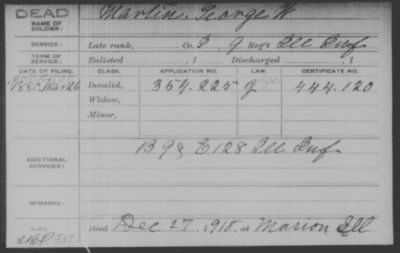 DEAD
NAME OF SOLDIER:
Martin, George W
SERVICE:
Late rank, Co. I, 9 Reg't Ill Inf
TERM OF SERVICE:
Enlisted , 1 Discharged , 1
DATE OF FILING. CLASS. APPLICATION NO. LAW. CERTIFICATE NO.
Invalid, 354.225 444.120
Widow,
Minor,
ADDITIONAL SERVICES:
B 9 & E 128 Ill Inf
REMARKS:
Died Dec 27, 1918, at Marion Ill